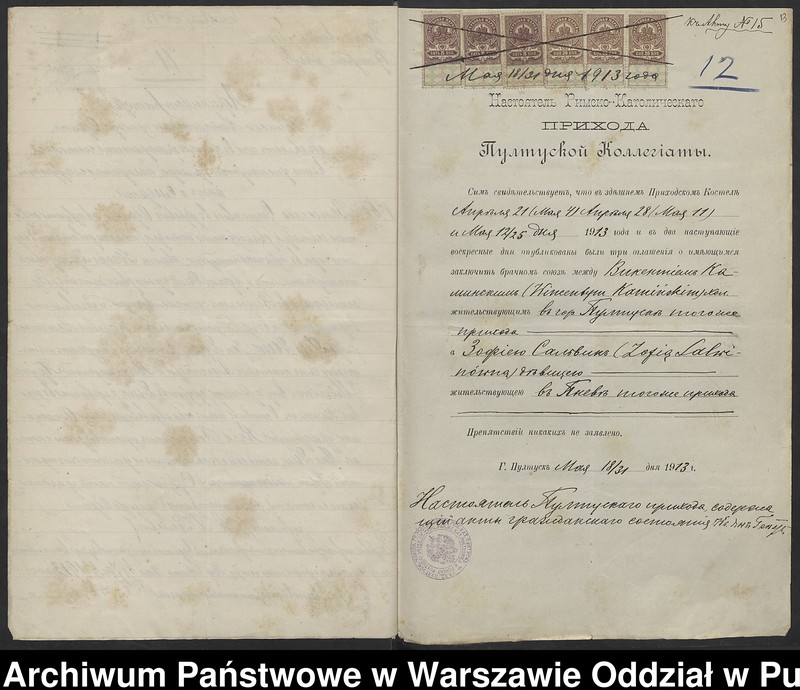 къ Акту № 15
13
12
Мая 18/31 дня 1913 года
Настоятель Римско-Католическаго
ПРИХОДА
Пултуской Коллегіаты.
Симъ свидѣтельствуетъ, что въ здѣшнемъ Приходскомъ Костелѣ
Апрѣля 21 (Мая 4) Апрѣля 28 (Мая 11)
и Мая 12/25 дня 1913 года и въ два наступающіе
воскресные дни опубликованы были три оглашенія о имѣющимся
заключить брачномъ союзѣ между Викентіемъ Ка-
минскимъ (Wincentym Kamińskim)
жительствующимъ въ гор. Пултускѣ тогоже
прихода
а Зофіею Сальвинъ (Zofią Salwi-
nówną) дѣвицею
жительствующею въ Пневѣ тогоже прихода
Препятствій никакихъ не заявлено.
Г. Пултускъ Мая 18/31 дня 1913 г.
Настоятель Пултускаго прихода, содержа-
щій акты гражданскаго состоянія
Archiwum Państwowe w Warszawie Oddział w Pu